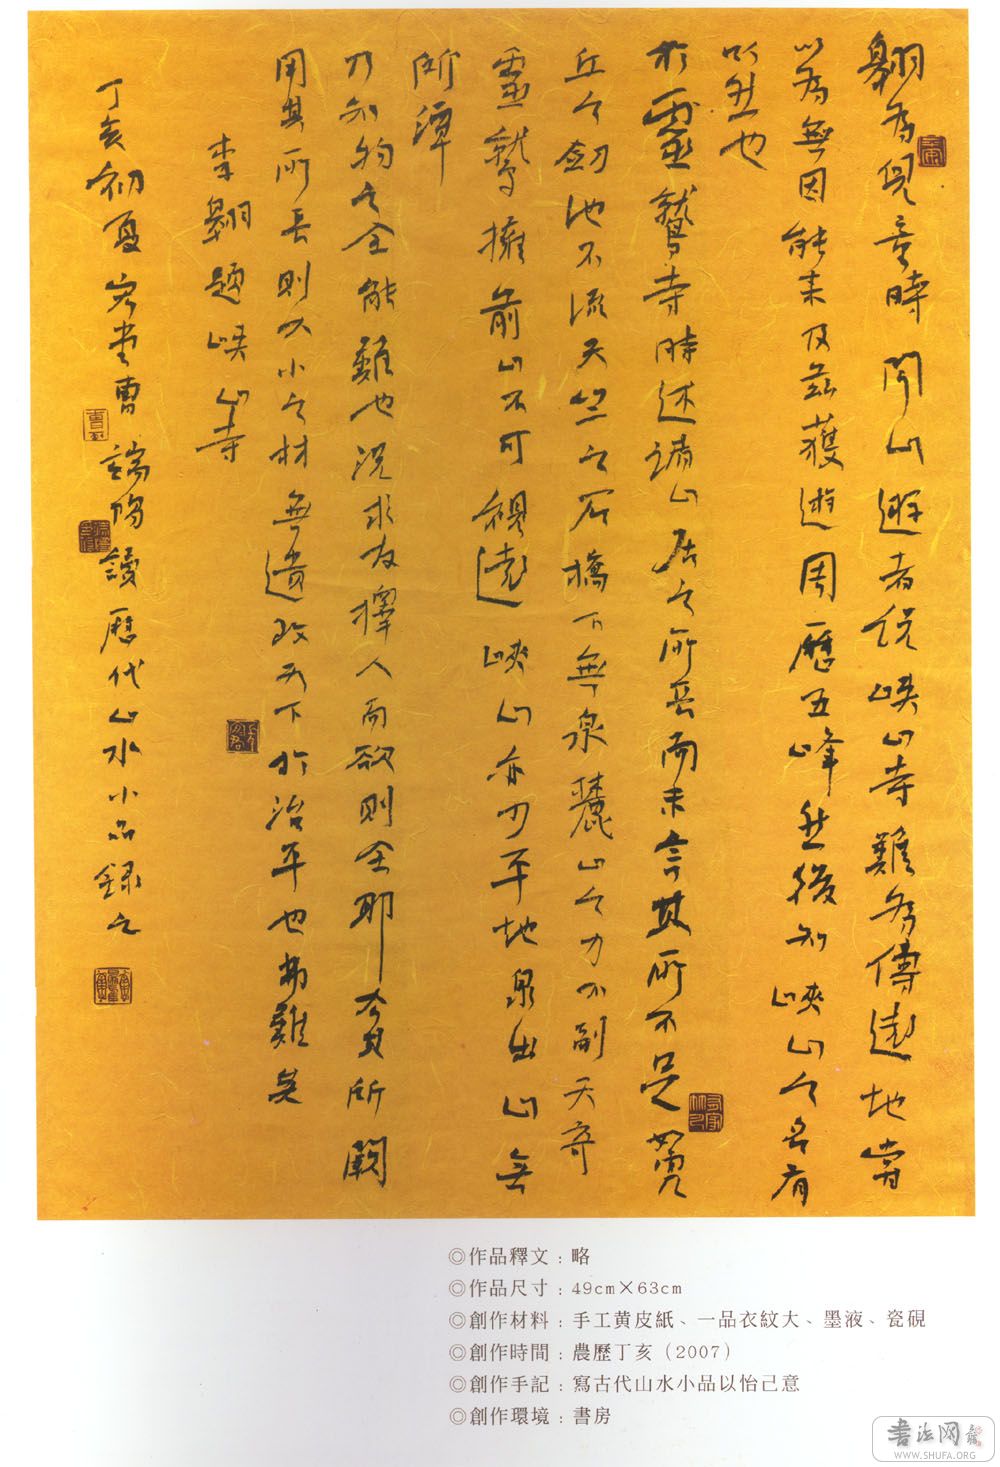 翱為兒童時聞山遊者說峽山寺難為傳遠地嘗
以為無因能來及茲獲遊周歷五峰然後知峽山之名有
以然也
於靈鷲寺時述諸山居之所長而未言其所不足如虎
丘之劍池不流天竺之石橋下無泉麓山之力不副天奇
靈鷲擁前山不可視遠峽山亦少平地泉出山無
所潭
乃知物之全能難也況求友擇人而欲責全耶去其所闕
用其所長則大小之材無遺致天下於治平也弗難矣
李翱題峽山寺
丁亥初夏
曹端陽讀歷代山水小品錄之
◎作品釋文：略
◎作品尺寸：49cm×63cm
◎創作材料：手工黃皮紙、一品衣紋大、墨液、瓷硯
◎創作時間：農歷丁亥（2007）
◎創作手記：寫古代山水小品以怡己意
◎創作環境：書房
書法网
WWW.SHUFA.ORG